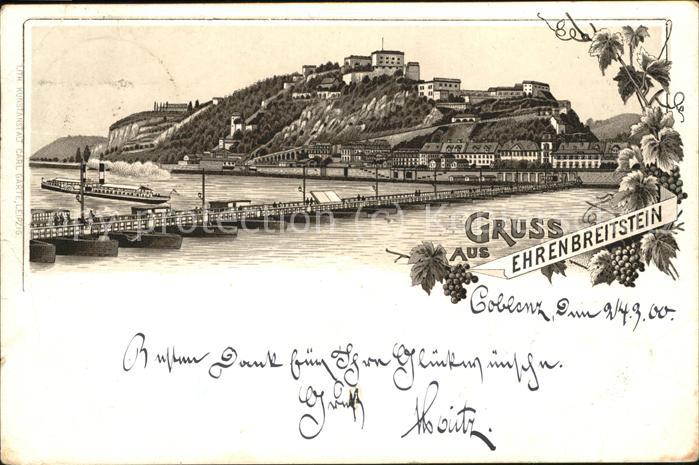 GRUSS
AUS
EHRENBREITSTEIN
Coblenz, den 24.3.00.
Besten Dank für Ihre Glückwünsche.
Gruß Moritz.
LITH. KUNSTANSTALT CARL GARTE, LEIPZIG